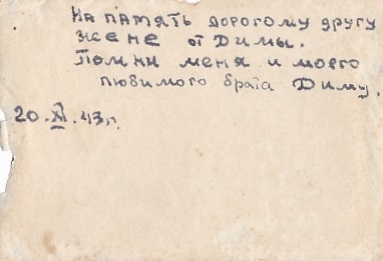 На память дорогому другу
жене от Димы.
Помни меня и моего
любимого брата Диму.
20.XI.43г.